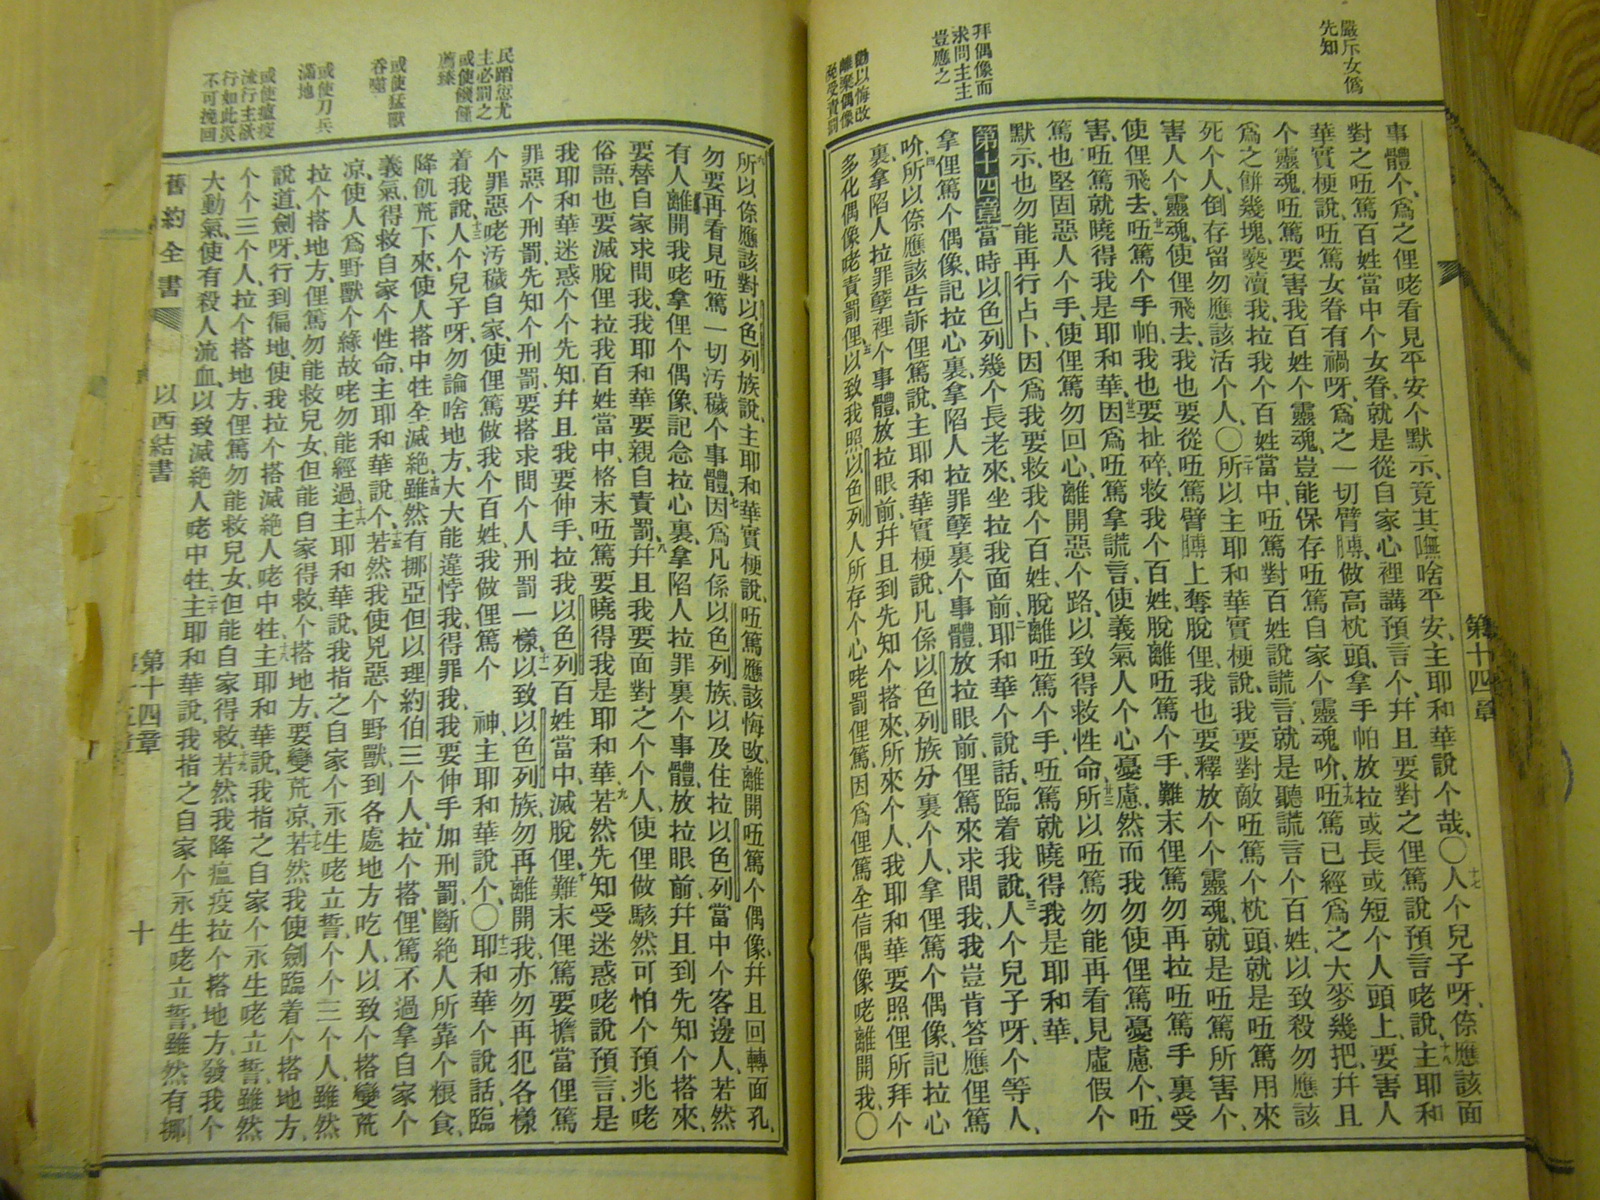 嚴斥女僞
先知
拜偶像而
求問主主
豈應之
勸以悔改
離棄偶像
免受責罰
第十四章
事體个、爲之俚咾看見平安个默示、竟其嘸啥平安、主耶和華說个哉、〇十七人个兒子呀、倷應該面
對之吜篤百姓當中个女眷、就是從自家心裡講預言个、幷且要對之俚篤說預言咾說、十八主耶和
華實梗說、吜篤女眷有禍呀、爲之一切臂膊、做高枕頭、拿手帕放拉或長或短个人頭上、要害人
个靈魂、吜篤要害我百姓个靈魂、豈能保存吜篤自家个靈魂吤、十九吜篤已經爲之大麥幾把、幷且
爲之餅幾塊、褻瀆我拉我个百姓當中、吜篤對百姓說謊言、就是聽謊言个百姓、以致殺勿應該
死个人、倒存留勿應該活个人、〇二十所以主耶和華實梗說、我要對敵吜篤个枕頭、就是吜篤用來
害人个靈魂、使俚飛去、我也要從吜篤臂膊上奪脫俚、我也要釋放个个靈魂、就是吜篤所害个、
使俚飛去、廿一吜篤个手帕、我也要扯碎、救我个百姓、脫離吜篤个手、難末俚篤勿再拉吜篤手裏受
害、吜篤就曉得我是耶和華、廿二因爲吜篤拿謊言、使義氣人个心憂慮、然而我勿使俚篤憂慮个、吜
篤也堅固惡人个手、使俚篤勿回心、離開惡个路、以致得救性命、廿三所以吜篤勿能再看見虛假个
默示、也勿能再行占卜、因爲我要救我个百姓、脫離吜篤个手、吜篤就曉得我是耶和華、
第十四章 一當時以色列幾个長老來、坐拉我面前、二耶和華个說話、臨着我說、三人个兒子呀、个等人、
拿俚篤个偶像、記拉心裏、拿陷人拉罪孽裏个事體、放拉眼前、俚篤來求問我、我豈肯答應俚篤
吤、四所以倷應該告訴俚篤說、主耶和華實梗說、凡係以色列族分裏个人、拿俚篤个偶像、記拉心
裏、拿陷人拉罪孽裡个事體、放拉眼前、幷且到先知个搭來、所來个人、我耶和華要照俚所拜个
多化偶像咾責罰俚、五以致我照以色列人所存个心咾罰俚篤、因爲俚篤全信偶像咾離開我、〇
民蹈愆尤
主必罰之
或使饑僅
薦臻
或使猛獸
吞噬
或使刀兵
滿地
或使瘟疫
流行主欲
行如此災
不可挽回
六所以倷應該對以色列族說、主耶和華實梗說、吜篤應該悔改、離開吜篤个偶像、幷且回轉面孔、
勿要再看見吜篤一切汚穢个事體、七因爲凡係以色列族、以及住拉以色列當中个客邊人、若然
有人離開我咾拿俚个偶像記念拉心裏、拿陷人拉罪裏个事體、放拉眼前、幷且到先知个搭來、
要替自家求問我、我耶和華要親自責罰、八幷且我要面對之个个人、使俚做駭然可怕个預兆咾
俗語、也要滅脫俚拉我百姓當中、格末吜篤要曉得我是耶和華、九若然先知受迷惑咾說預言、是
我耶和華迷惑个个先知、幷且我要伸手、拉我以色列百姓當中、滅脫俚、十難末俚篤要擔當俚篤
罪惡个刑罰、先知个刑罰、要搭求問个人刑罰一樣、十一以致以色列族、勿再離開我、亦勿再犯各樣
个罪惡咾汚穢自家、使俚篤做我个百姓、我做俚篤个 神、主耶和華說个、〇十二耶和華个說話、臨
着我說、十三人个兒子呀、勿論啥地方、大大能違悖我、得罪我、我要伸手加刑罰、斷絕人所靠个粮食、
降飢荒下來、使人搭中牲全滅絕、十四雖然有挪亞但以理約伯三个人、拉个搭、俚篤不過拿自家个
義氣、得救自家个性命、主耶和華說个、十五若然我使兇惡个野獸、到各處地方吃人、以致个搭變荒
凉、使人爲野獸个緣故咾勿能經過、十六主耶和華說、我指之自家个永生咾立誓、个个三个人、雖然
拉个搭地方、俚篤勿能救兒女、但能自家得救、个搭地方、要變荒凉、十七若然我使劍臨着个搭地方、
說道、劍呀、行到徧地、使我拉个搭滅絕人咾中牲、十八主耶和華說、我指之自家个永生咾立誓、雖然
个个三个人、拉个搭地方、俚篤勿能救兒女、但能自家得救、十九若然我降瘟疫拉个搭地方、發我个
大動氣、使有殺人流血、以致滅絕人咾中牲、二十主耶和華說、我指之自家个永生咾立誓、雖然有挪
舊約全書
以西結書
第十四章
十